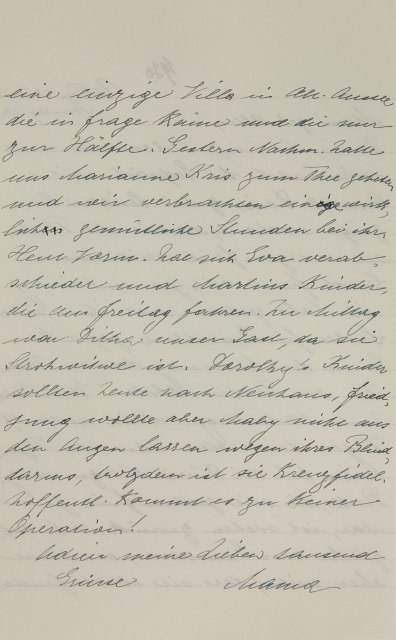 eine einzige Villa in Alt. Aussee
die in frage käme und die nur
zur Hälfte. Gestern Nachm. hatte
uns Marianne Kris zum Thee gebeten
und wir verbrachten einige wirk,
lich gemütliche Stunden bei ihr.
Heut Vorm. hat sich Eva verab-
schiedet und Martins Kinder,
die am freitag fahren. Zu Mittag
war Ditha, unser Gast, da sie
Strohwitwe ist. Dorothy's Kinder
sollten heute nach Neuhaus, fried,
jung wollte aber Maby nicht aus
den Augen lassen wegen ihres Blind,
darms, trotzdem ist sie Kreuzfidel.
hoffentl. Kommt es zu Keiner
Operation!
Adieu meine Lieben tausend
Grüsse Mama